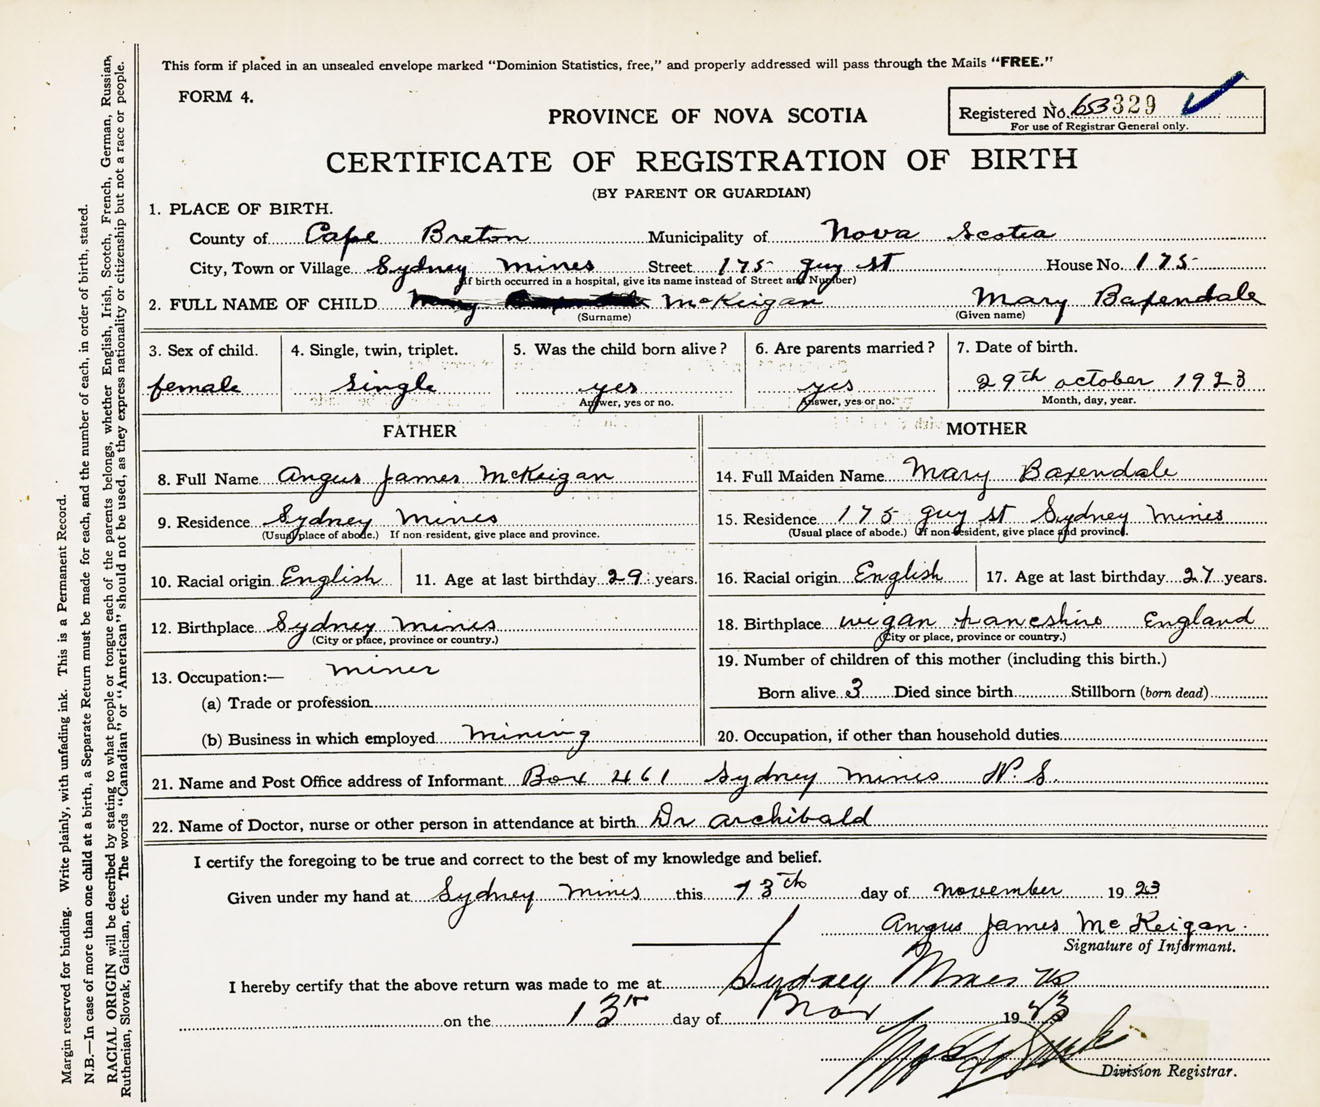 This form if placed in an unsealed envelope marked "Dominion Statistics, free," and properly addressed will pass through the Mails "FREE."
FORM 4.
PROVINCE OF NOVA SCOTIA
Registered No. 653329
For use of Registrar General only.
CERTIFICATE OF REGISTRATION OF BIRTH
(BY PARENT OR GUARDIAN)
1. PLACE OF BIRTH.
County of Cape Breton Municipality of Nova Scotia
City, Town or Village Sydney mines Street 175 guy st House No. 175
(If birth occurred in a hospital, give its name instead of Street and Number)
2. FULL NAME OF CHILD McKeigan Mary Baxendale
(Surname) (Given name)
3. Sex of child. 4. Single, twin, triplet. 5. Was the child born alive? 6. Are parents married? 7. Date of birth.
female single yes yes 29th october 1923
Answer, yes or no. Answer, yes or no. Month, day, year.
FATHER MOTHER
8. Full Name Angus James McKeigan 14. Full Maiden Name Mary Baxendale
9. Residence Sydney mines 15. Residence 175 guy st Sydney mines
(Usual place of abode.) If non-resident, give place and province. (Usual place of abode.) If non-resident, give place and province.
10. Racial origin English 11. Age at last birthday 29 years. 16. Racial origin English 17. Age at last birthday 27 years.
12. Birthplace Sydney mines 18. Birthplace wigan Lancashire England
(City or place, province or country.) (City or place, province or country.)
13. Occupation:— miner 19. Number of children of this mother (including this birth.)
(a) Trade or profession Born alive 3 Died since birth Stillborn (born dead)
(b) Business in which employed mining 20. Occupation, if other than household duties
21. Name and Post Office address of Informant Box 461 Sydney mines N.S.
22. Name of Doctor, nurse or other person in attendance at birth Dr archibald
I certify the foregoing to be true and correct to the best of my knowledge and belief.
Given under my hand at Sydney mines this 13th day of november 1923
Angus James McKeigan.
Signature of Informant.
I hereby certify that the above return was made to me at Sydney Mines NS
on the 13th day of Nov 1923
Division Registrar.
Margin reserved for binding. Write plainly, with unfading ink. This is a Permanent Record.
N.B.—In case of more than one child at a birth, a Separate Return must be made for each, and the number of each, in order of birth, stated.
RACIAL ORIGIN will be described by stating to what people or tongue each of the parents belongs, whether English, Irish, Scotch, French, German, Russian,
Ruthenian, Slovak, Galician, etc. The words "Canadian" or "American" should not be used, as they express nationality or citizenship but not a race or people.